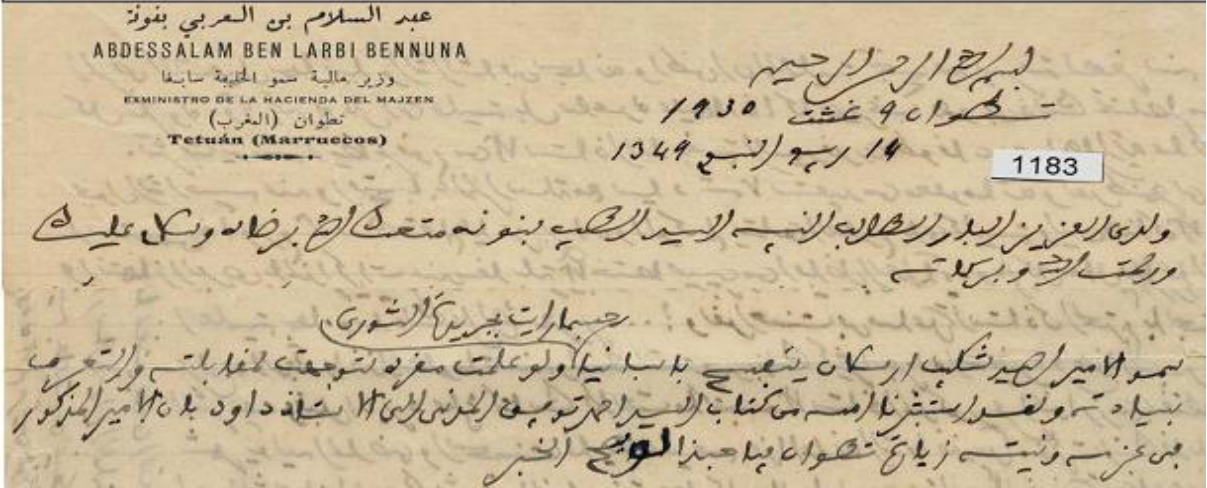 عبد السلام بن العربي بنونة
ABDESSALAM BEN LARBI BENNUNA
وزير مالية سمو الخليفة سابقا
EXMINISTRO DE LA HACIENDA DEL MAJZEN
تطوان (المغرب)
Tetuán (Marruecos)
بسم الله الرحمن الرحيم
تطوان 9 غشت 1930
14 ربيع النبوي 1349
1183
ولدي العزيز البار الطالب النبيه السيد الطيب بنونه متعك الله برضاه وسلام عليك
ورحمت الله وبركاته
حسبما رايت بجريدة الشورى
سمو الامير السيد شكيب ارسلان باسبانيا ولو علمت مقره لتوجهت لمقابلته والتعرف
بسيادته ولقد استبشرنا امس من كتاب السيد احمد توفيق المدني الى الاستاذ داود بان الامير المذكور
في عزمه ونيته زيارة تطوان فيا حبذا لو يصح الخبر